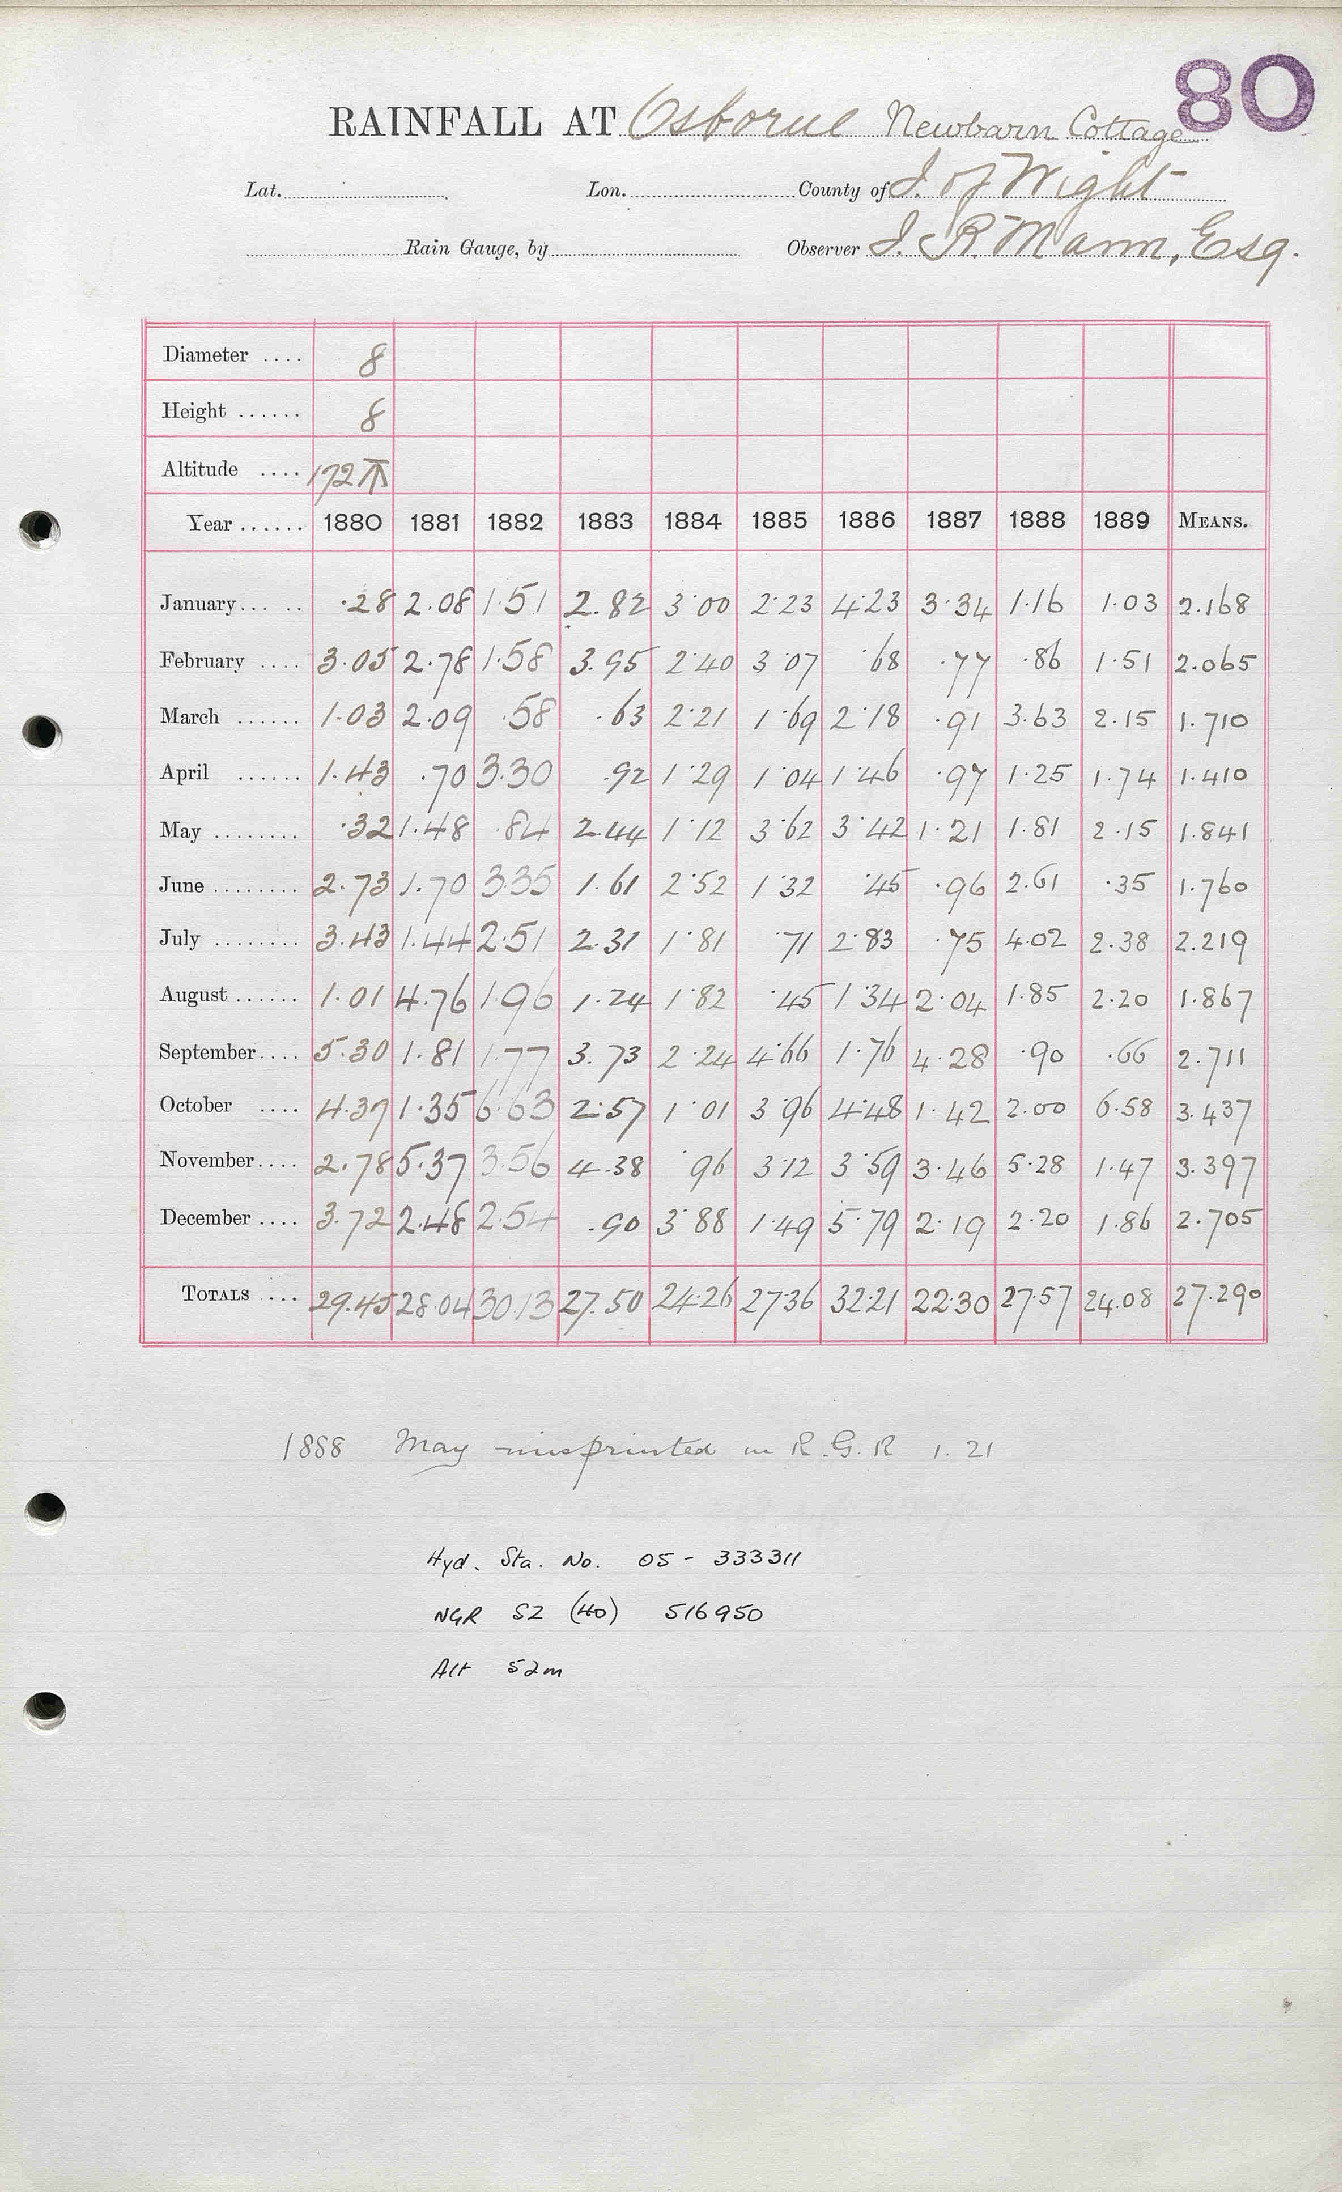 80
RAINFALL AT Osborne Newbarn Cottage
Lat. Lon. County of I. of Wight
Rain Gauge, by Observer J. R. Mann, Esq.
Diameter .... 8
Height ...... 8
Altitude .... 172
Year ...... 1880 1881 1882 1883 1884 1885 1886 1887 1888 1889 MEANS.
January... .. .28 2.08 1.51 2.82 3.00 2.23 4.23 3.34 1.16 1.03 2.168
February .... 3.05 2.78 1.58 3.95 2.40 3.07 .68 .77 .86 1.51 2.065
March ...... 1.03 2.09 .58 .63 2.21 1.69 2.18 .91 3.63 2.15 1.710
April ...... 1.43 .70 3.30 .92 1.29 1.04 1.46 .97 1.25 1.74 1.410
May ........ .32 1.48 .84 2.44 1.12 3.62 3.42 1.21 1.81 2.15 1.841
June ........ 2.73 1.70 3.35 1.61 2.52 1.32 .45 .96 2.61 .35 1.760
July ........ 3.43 1.44 2.51 2.31 1.81 .71 2.83 .75 4.02 2.38 2.219
August ...... 1.01 4.76 1.96 1.24 1.82 .45 1.34 2.04 1.85 2.20 1.867
September.... 5.30 1.81 1.77 3.73 2.24 4.66 1.76 4.28 .90 .66 2.711
October .... 4.37 1.35 6.63 2.57 1.01 3.96 4.48 1.42 2.00 6.58 3.437
November.... 2.78 5.37 3.56 4.38 .96 3.12 3.59 3.46 5.28 1.47 3.397
December .... 3.72 2.48 2.54 .90 3.88 1.49 5.79 2.19 2.20 1.86 2.705
TOTALS ... 29.45 28.04 30.13 27.50 24.26 27.36 32.21 22.30 27.57 24.08 27.290
1888 May misprinted in R.G.R 1.21
Hyd. Sta. No. 05 - 333311
NGR SZ (40) 516950
Alt 52m